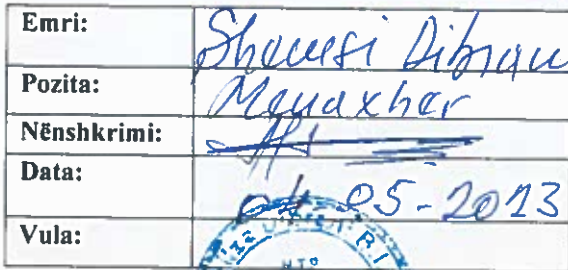 Emri: Shemsi Dibrani
Pozita: Menaxher
Nënshkrimi:
Data: 04 05-2013
Vula: